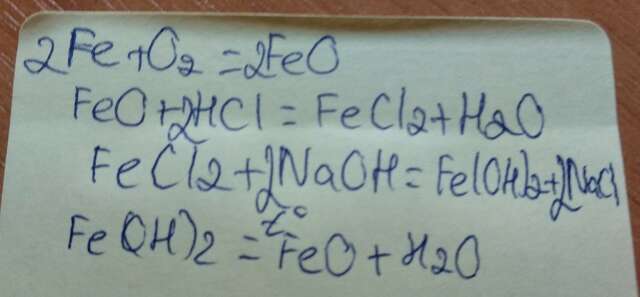 2Fe+O2=2FeO
FeO+2HCl=FeCl2+H2O
FeCl2+2NaOH=Fe(OH)2+2NaCl
Fe(OH)2 =t° FeO+H2O